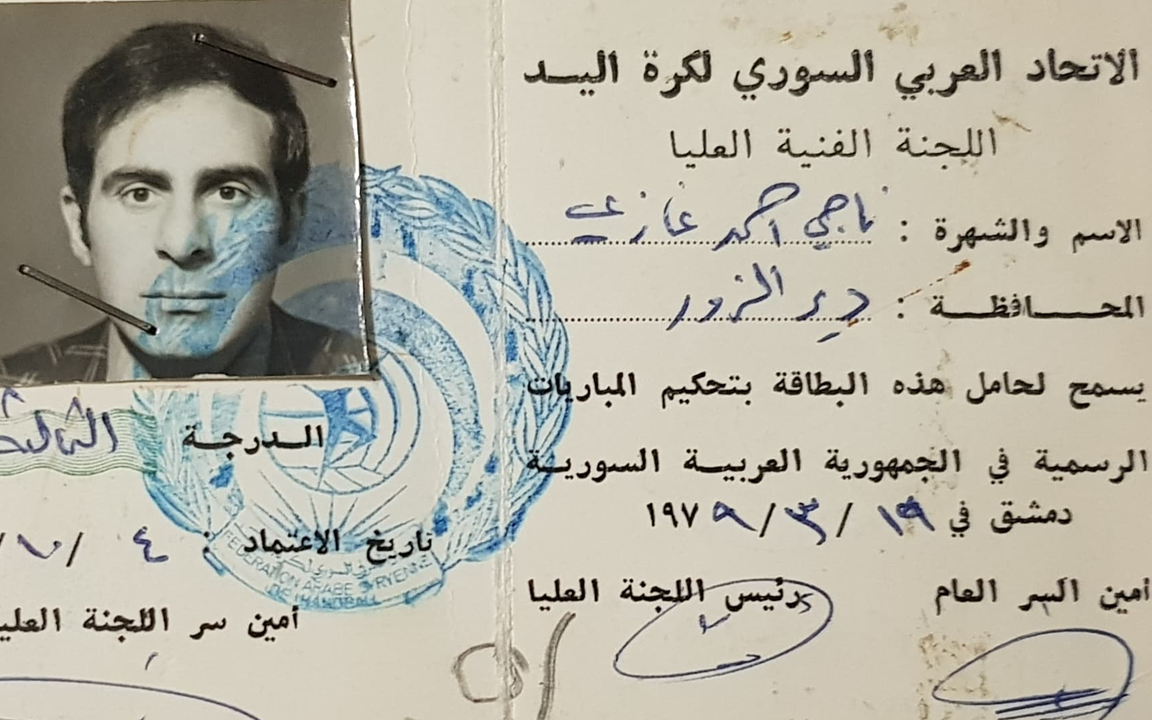 الاتحاد العربي السوري لكرة اليـــد
اللجنة الفنية العليا
الاسم والشهرة : ناجي احمد غازي
المحـــافظـــة : دير الزور
يسمح لحامل هذه البطاقة بتحكيم المباريات
الرسمية في الجمهورية العربيـة السوريـة
دمشق في ١٩ / ٣ / ١٩٧٩
أمين السر العام
رئيس اللجنة العليا
الـدرجـة الثالثة
تاريخ الاعتماد : ٤ /
أمين سر اللجنة العليا
FEDERATION ARABE SYRIENNE
DE HANDBALL